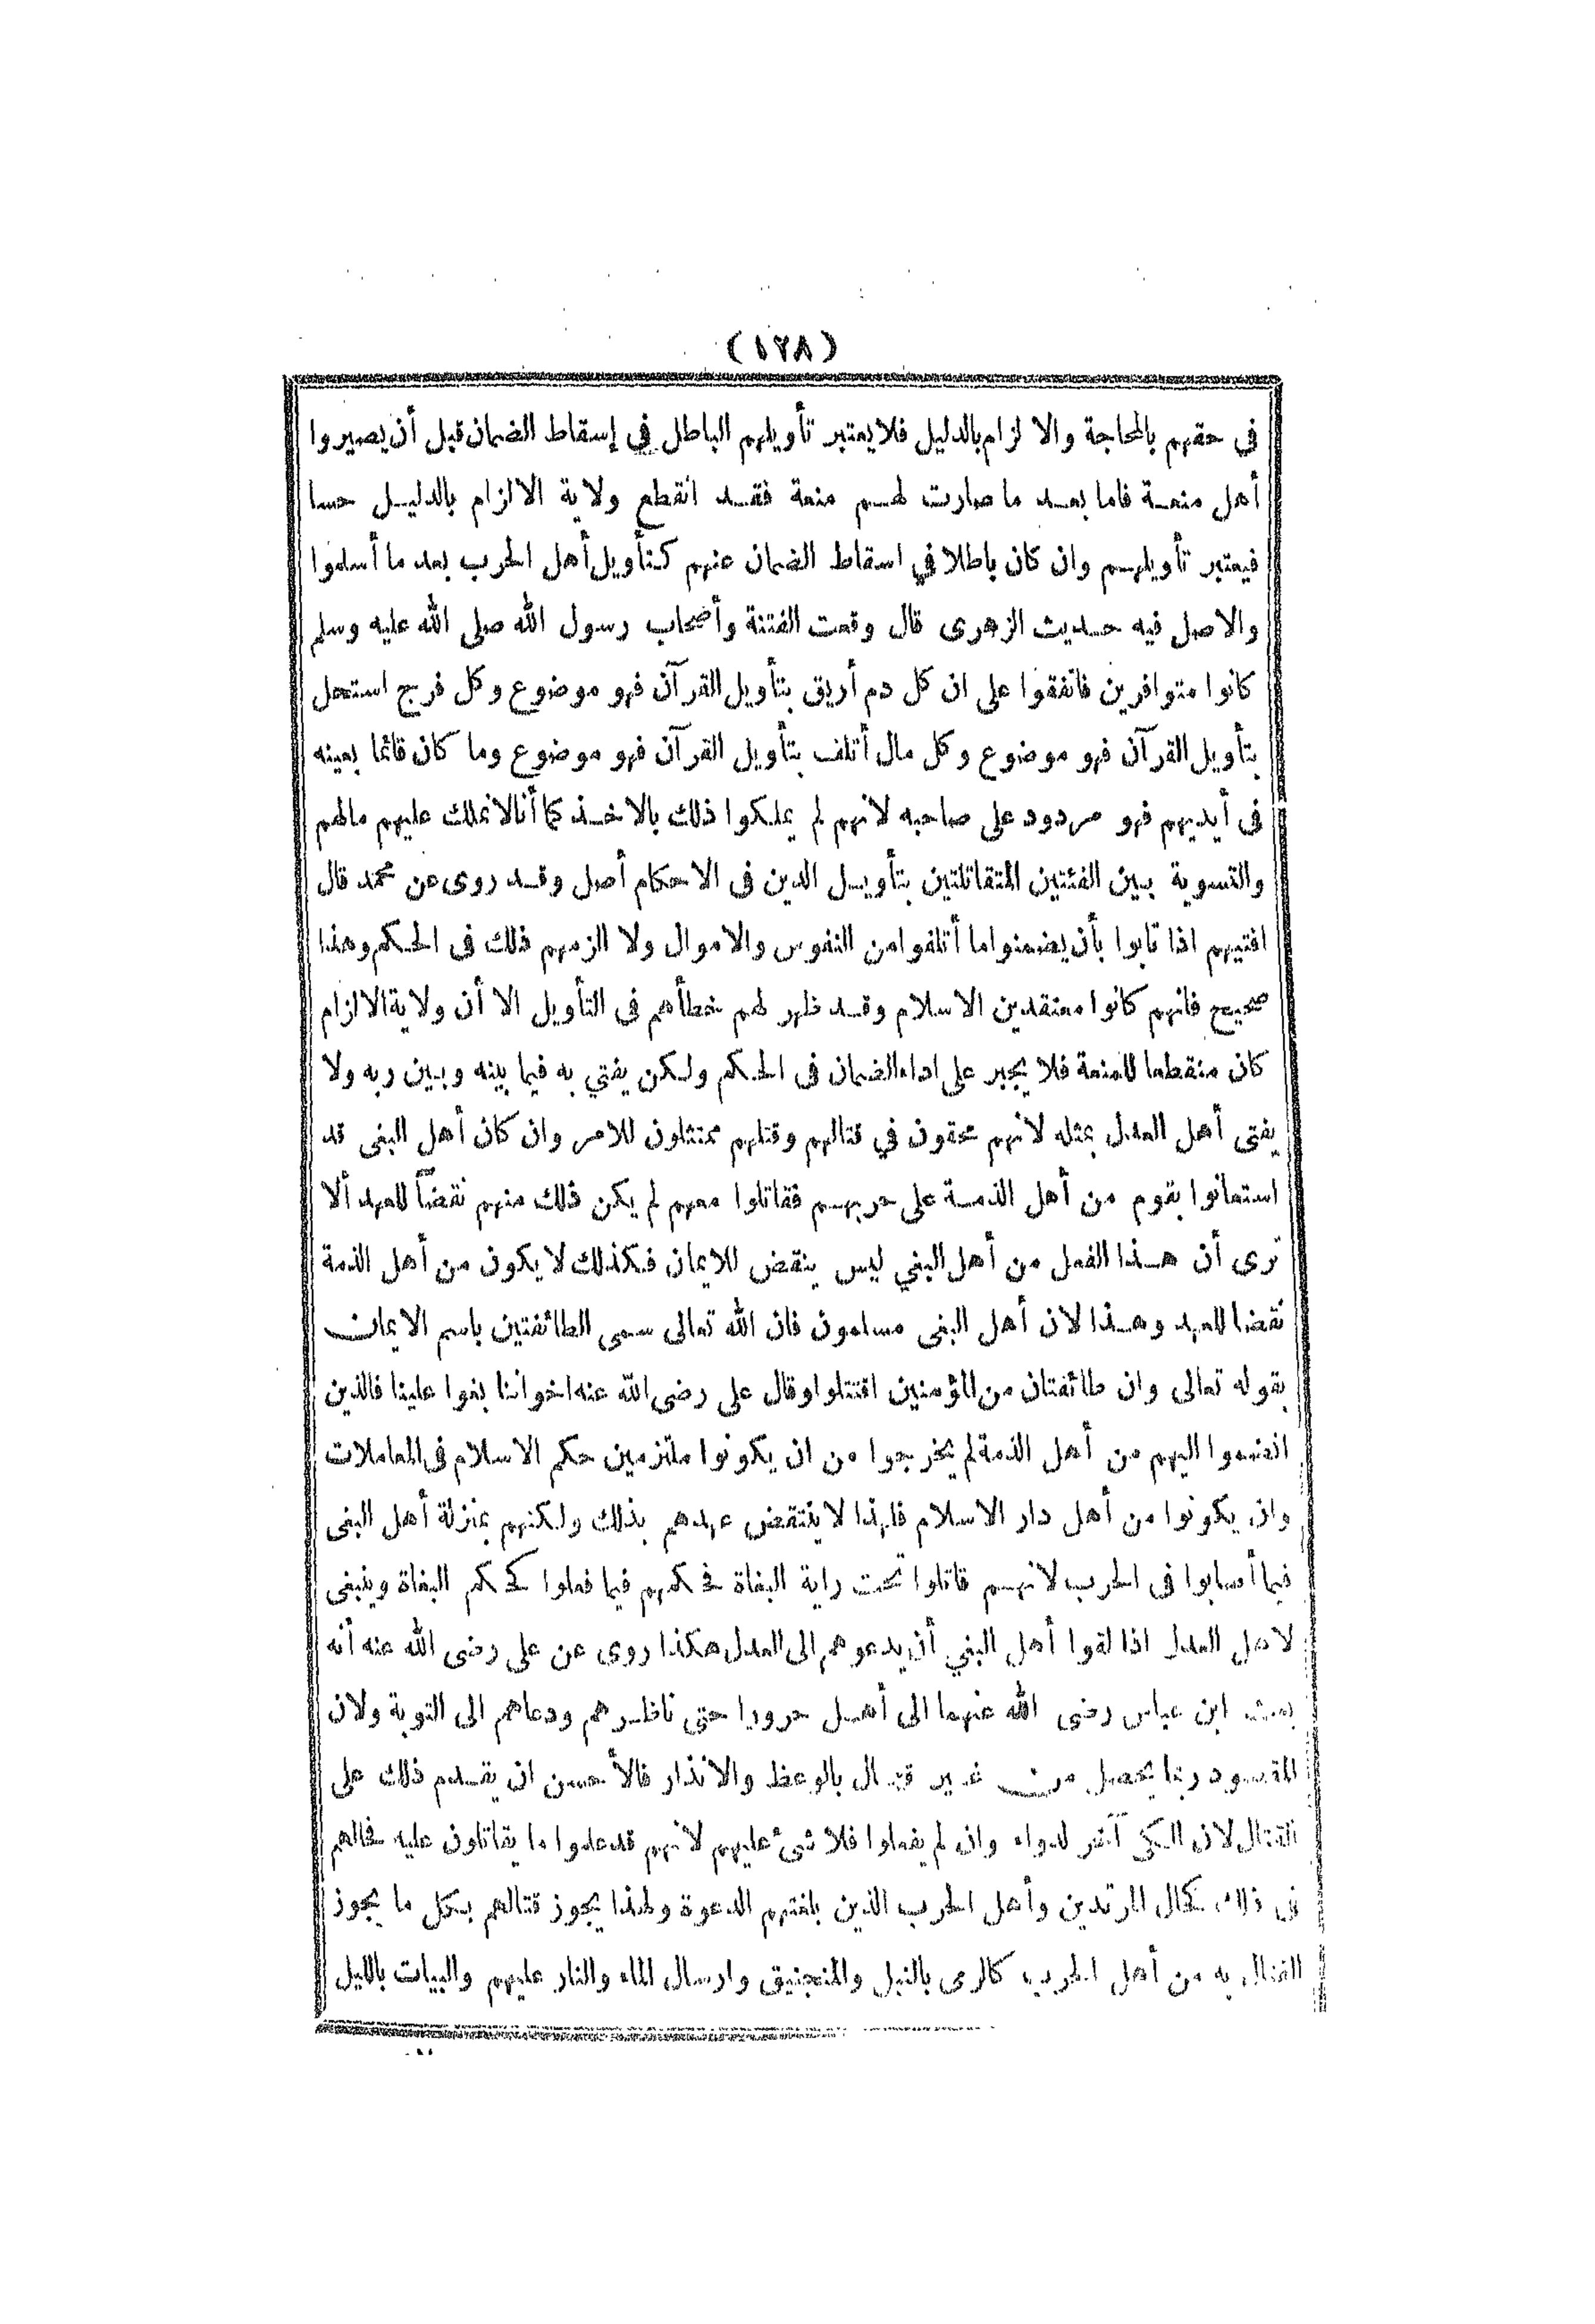 (١٢٨)
في حقهم بالمحاجة والا لزام بالدليل فلا يعتبر تأويلهم الباطل في إسقاط الضمان قبل أن يصيروا
أهل منعة فاما بعد ما صارت لهم منعة فقد انقطع ولاية الالزام بالدليل حسا
فيعتبر تأويلهم وان كان باطلا في اسقاط الضمان عنهم كتأويل أهل الحرب بعد ما أسلموا
والاصل فيه حديث الزهرى قال وقعت الفتنة وأصحاب رسول الله صلى الله عليه وسلم
كانوا متوافرين فاتفقوا على ان كل دم أريق بتأويل القرآن فهو موضوع وكل فرج استحل
بتأويل القرآن فهو موضوع وكل مال أتلف بتأويل القرآن فهو موضوع وما كان قائما بعينه
فى أيديهم فهو مردود على صاحبه لانهم لم يملكوا ذلك بالاخذ كما أنا لا نملك عليهم مالهم
والتسوية بين الفئتين المتقاتلتين بتأويل الدين فى الاحكام أصل وقد روى عن محمد قال
افتيهم اذا تابوا بأن يضمنوا ما أتلفوا من النفوس والاموال ولا الزمهم ذلك فى الحكم وهذا
صحيح فانهم كانوا معتقدين الاسلام وقد ظهر لهم خطأهم فى التأويل الا أن ولاية الالزام
كان منقطعا للمنعة فلا يجبر على اداء الضمان فى الحكم ولكن يفتي به فيما بينه وبين ربه ولا
يفتى أهل العدل بمثله لانهم محقون في قتالهم وقتلهم ممتثلون للامر وان كان أهل البغى قد
استعانوا بقوم من أهل الذمة على حربهم فقاتلوا معهم لم يكن ذلك منهم نقضاً للعهد ألا
ترى أن هذا الفعل من أهل البغي ليس ينقض للايمان فكذلك لا يكون من أهل الذمة
نقضا للعهد وهذا لان أهل البغى مسلمون فان الله تعالى سمى الطائفتين باسم الايمان
بقوله تعالى وان طائفتان من المؤمنين اقتتلوا وقال على رضى الله عنه اخواننا بغوا علينا فالذين
انضموا اليهم من أهل الذمة لم يخرجوا من ان يكونوا ملتزمين حكم الاسلام فى المعاملات
وان يكونوا من أهل دار الاسلام فلهذا لا ينتقض عهدهم بذلك ولكنهم بمنزلة أهل البغى
فيما أصابوا فى الحرب لانهم قاتلوا تحت راية البغاة فحكمهم فيما فعلوا كحكم البغاة وينبغى
لاهل العدل اذا لقوا أهل البغي أن يدعوهم الى العدل هكذا روى عن على رضى الله عنه أنه
بعث ابن عباس رضى الله عنهما الى أهل حرورا حتى ناظرهم ودعاهم الى التوبة ولان
المقصود ربما يحصل من غير قتال بالوعظ والانذار فالأحسن ان يقدم ذلك على
القتال لان الكي آخر الدواء وان لم يفعلوا فلا شئ عليهم لانهم قد علموا ما يقاتلون عليه فحالهم
فى ذلك كحال المرتدين وأهل الحرب الذين بلغتهم الدعوة ولهذا يجوز قتالهم بكل ما يجوز
القتال به من أهل الحرب كالرمى بالنبل والمنجنيق وارسال الماء والنار عليهم والبيات بالليل